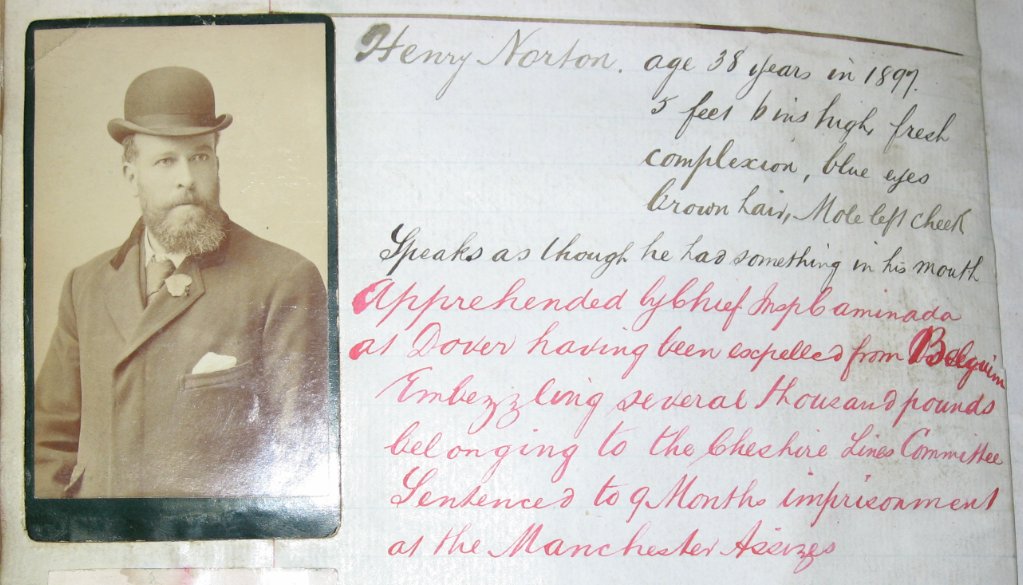 Henry Norton. age 38 years in 1897.
5 feet 6 ins high, fresh
complexion, blue eyes
brown hair, Mole left cheek
Speaks as though he had something in his mouth
Apprehended by Chief Insp Caminada
at Dover having been expelled from Belguim
Embezzling several thousand pounds
belonging to the Cheshire Lines Committee
Sentenced to 9 Months imprisonment
at the Manchester Assizes